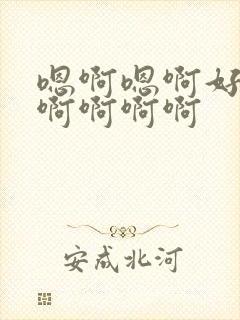 嗯啊嗯啊好
啊啊啊啊
安成北河